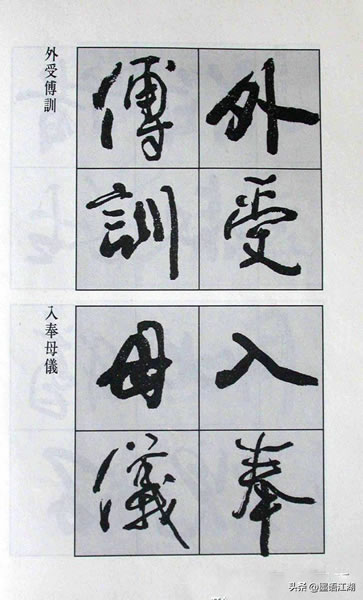 外受傅訓
外受
傅訓
入奉母儀
入奉
母儀
头条@墨语江湖